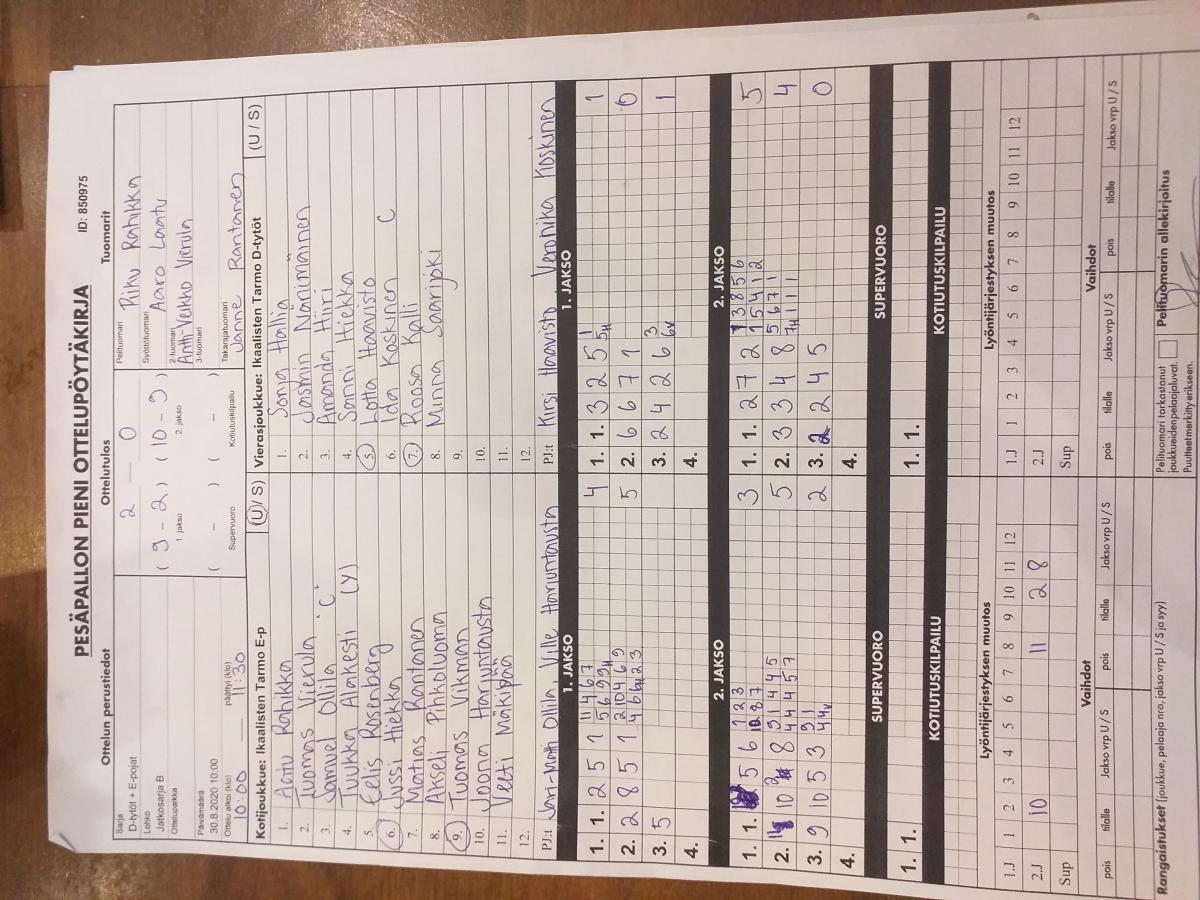 PESÄPALLON PIENI OTTELUPÖYTÄKIRJA
ID: 850975
Ottelun perustiedot
Ottelutulos
Tuomarit
Sarja
D-tytöt + E-pojat
Lohko
Jatkosarja B
Ottelupaikka
Päivämäärä
30.8.2020 10:00
Ottelu alkoi (klo)
10:00
päättyi (klo)
11:30
2 — 0
( 9 - 2 ) ( 10 - 9 )
1. jakso 2. jakso
( - ) ( - )
Supervuoro Kotiutuskilpailu
Pelituomari
Riku Rahikka
Syöttötuomari
Aaro Laatu
2-tuomari
Antti-Veikko Vierula
3-tuomari
Takarajatuomari
Janne Rantanen
Kotijoukkue: Ikaalisten Tarmo E-p (U / S)
1. Aatu Rahikka
2. Tuomas Vierula
3. Samuel Ollila 'C'
4. Tuukka Alakesti (Y)
5. Eelis Rosenberg
6. Jussi Hiekka
7. Matias Rantanen
8. Akseli Pihkoluoma
9. Tuomas Vikman
10. Joona Harjuntausta
11. Veeti Mäkipää
12.
PJ:t Jari-Matti Ollila, Ville Harjuntausta
Vierasjoukkue: Ikaalisten Tarmo D-tytöt (U / S)
1. Sonja Hallia
2. Jasmin Nänimäinen
3. Amanda Hiiri
4. Sanni Hiekka
5. Lotta Haavisto
6. Ida Koskinen C
7. Roosa Kalli
8. Minna Saaripki
9.
10.
11.
12.
PJ:t Kirsi Haavisto Veronika Koskinen
1. JAKSO
1. 1. 2 5 1 4
2. 2 8 5 1 5
3. 5
4.
1. JAKSO
1. 1. 3 2 5 1
2. 6 6 7 1 0
3. 2 4 2 6 1
4.
2. JAKSO
1. 1. 5 6 3
2. 10 8 5
3. 9 10 5 3 2
4.
2. JAKSO
1. 1. 2 7 2 5
2. 3 3 4 8 4
3. 2 2 4 5 0
4.
SUPERVUORO
1. 1.
SUPERVUORO
1. 1.
KOTIUTUSKILPAILU
KOTIUTUSKILPAILU
Lyöntijärjestyksen muutos
1.J 1 2 3 4 5 6 7 8 9 10 11 12
2.J 10 11 2 8
Sup
Lyöntijärjestyksen muutos
1.J 1 2 3 4 5 6 7 8 9 10 11 12
2.J
Sup
Vaihdot
pois tilalle Jakso vrp U / S pois tilalle Jakso vrp U / S
Vaihdot
pois tilalle Jakso vrp U / S pois tilalle Jakso vrp U / S
Rangaistukset (joukkue, pelaaja nro, jakso vrp U / S ja syy)
Pelituomari tarkastanut
joukkueidenpelaajaluvat.
Puutteetmerkitty erikseen.
Pelituomarin allekirjoitus